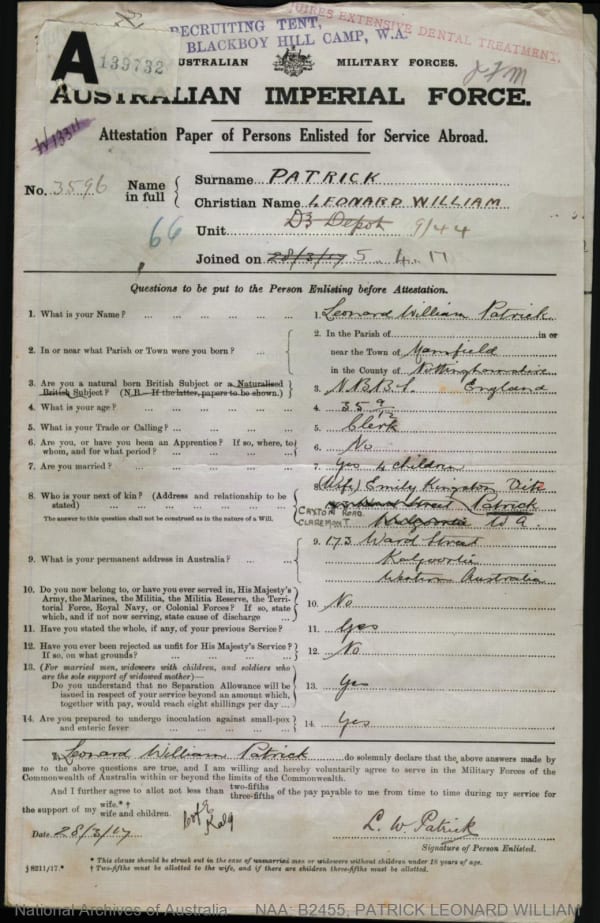 RECRUITING TENT,
BLACKBOY HILL CAMP, W.A.
EXTENSIVE DENTAL TREATMENT.
A
139732
AUSTRALIAN MILITARY FORCES.
AUSTRALIAN IMPERIAL FORCE.
Attestation Paper of Persons Enlisted for Service Abroad.
No. 3596 Name in full { Surname PATRICK
Christian Name LEONARD WILLIAM
66 Unit D3 Depot 9/44
Joined on 28/3/17 5. 4. 17
Questions to be put to the Person Enlisting before Attestation.
1. What is your Name? 1. Leonard William Patrick
2. In or near what Parish or Town were you born? 2. In the Parish of in or
near the Town of Mansfield
in the County of Nottinghamshire
3. Are you a natural born British Subject or a Naturalised
British Subject? (N.B.—If the latter, papers to be shown.) 3. N.B.B.S. England
4. What is your age? 4. 35 9/12
5. What is your Trade or Calling? 5. Clerk
6. Are you, or have you been an Apprentice? If so, where, to
whom, and for what period? 6. No
7. Are you married? 7. Yes 4 children
8. Who is your next of kin? (Address and relationship to be
stated) 8. (Wife) Emily Kingston
Street Patrick
CAXTON ROAD
CLAREMONT Kalgoorlie W A.
The answer to this question shall not be construed as in the nature of a Will.
9. What is your permanent address in Australia? 9. 173 Ward Street
Kalgoorlie
Western Australia
10. Do you now belong to, or have you ever served in, His Majesty's
Army, the Marines, the Militia, the Militia Reserve, the Terri-
torial Force, Royal Navy, or Colonial Forces? If so, state
which, and if not now serving, state cause of discharge 10. No
11. Have you stated the whole, if any, of your previous Service? 11. Yes
12. Have you ever been rejected as unfit for His Majesty's Service?
If so, on what grounds? 12. No
13. (For married men, widowers with children, and soldiers who
are the sole support of widowed mother)—
Do you understand that no Separation Allowance will be
issued in respect of your service beyond an amount which,
together with pay, would reach eight shillings per day 13. Yes
14. Are you prepared to undergo inoculation against small-pox
and enteric fever 14. Yes
I, Leonard William Patrick do solemnly declare that the above answers made by
me to the above questions are true, and I am willing and hereby voluntarily agree to serve in the Military Forces of the
Commonwealth of Australia within or beyond the limits of the Commonwealth.
And I further agree to allot not less than two-fifths
three-fifths of the pay payable to me from time to time during my service for
the support of my wife.* †
wife and children.
Date 28/3/17 L. W. Patrick
Signature of Person Enlisted.
§ 8211/17.* * This clause should be struck out in the case of unmarried men or widowers without children under 18 years of age.
† Two-fifths must be allotted to the wife, and if there are children three-fifths must be allotted.
National Archives of Australia NAA: B2455, PATRICK LEONARD WILLIAM